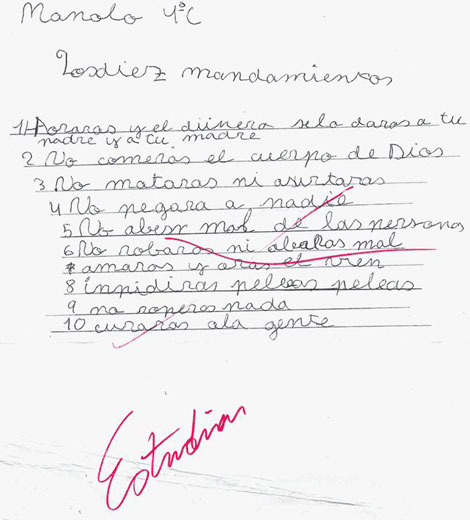 Manolo 4ºC
Los diez mandamientos
1 Aoraras y el diinero selo daras a tu
padre y a tu madre
2 No comeras el cuerpo de Dios
3 No mataras ni asustaras
4 No pegara a nadie
5 No mal de las persona
6 No robaras ni mal
amaras y aras el vien
8 inpidiras peleas peleas
9 no roperos nada
10 curaras ala gente
Estudiar